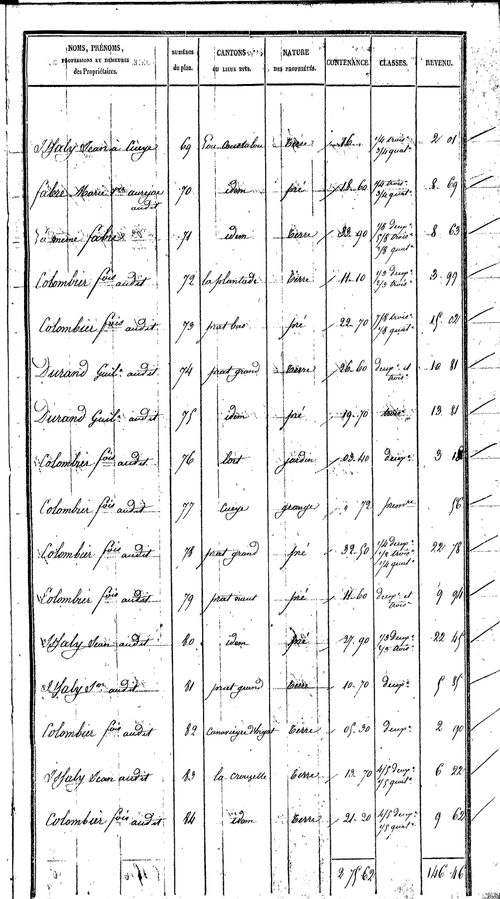 NOMS, PRÉNOMS,
PROFESSIONS ET DEMEURES
des Propriétaires.
NUMÉROS
du plan.
CANTONS
OU LIEUX DITS.
NATURE
DES PROPRIÉTÉS.
CONTENANCE
CLASSES.
REVENU.
Jean à Cueye 69 terre 36 1/4 trois 3/4 quat. 2 01
fabre Marie audit 70 idem pré 18 60 1/4 trois 3/4 quat. 8 69
La même fabre 71 idem terre 33 90 1/8 deux 5/8 trois 2/8 quat. 8 63
Colombier fois audit 72 la plantade terre 11 10 1/3 deux 2/3 trois 3 99
Colombier fois audit 73 prat bas pré 22 70 7/8 trois 1/8 quat. 15 02
Durand Guil. audit 74 prat grand terre 26 60 deux. et trois 10 81
Durand Guil. audit 75 idem pré 19 70 trois 13 81
Colombier fois audit 76 lort jardin 03 40 deux. 3
Colombier fois audit 77 Cueye grange 72 prem. 56
Colombier fois audit 78 prat grand pré 32 50 1/4 deux. 1/2 trois 1/4 quat. 22 78
Colombier fois audit 79 prat naut pré 11 60 deux. et trois 9 94
Jean audit 80 idem pré 27 90 deux. trois 22 45
audit 81 prat grand terre 10 70 deux. 5 85
Colombier fois audit 82 terre 05 30 deux. 2 90
Jean audit 83 la crouzelle terre 13 70 4/5 deux. 1/5 quat. 6 22
Colombier fois audit 84 idem terre 21 30 4/5 deux. 1/5 quat. 9 62
2 75 62 146 46